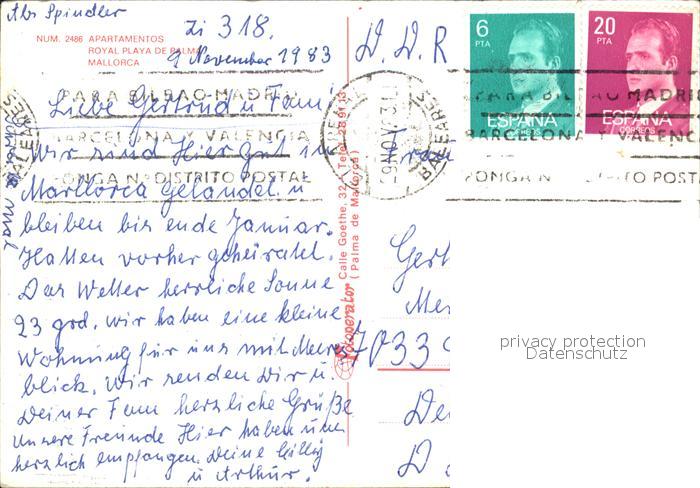 Abs Spindler
Zi 318.
NUM. 2486 APARTAMENTOS
ROYAL PLAYA DE PALMA
MALLORCA
9 November 1983
D. D. R
6
PTA
ESPAÑA
CORREOS
20
PTA
ESPAÑA
CORREOS
PARA BILBAO-MADRID
BARCELONA Y VALENCIA
PONGA Nº DISTRITO POSTAL
-9 NOV. 83
BALEARES
PARA BILBAO MADRID
BARCELONA Y VALENC
PONGA Nº DISTRITO POST
Liebe Gertrud u Fam!
Wir sind Hier gut in
Marllorca Gelandet u
bleiben bis ende Januar.
Hatten vorher geheiratet.
Das Wetter herrliche Sonne
23 grd. wir haben eine kleine
Wohnung für uns mit Meeres
blick. Wir senden Dir u.
Deiner Fam herzliche Grüße
Unsere Freunde Hier haben uns
herzlich empfangen. Deine Cilly
u Arthur.
mal
Fotooperator Calle Goethe, 32 - Telef. 289113
(Palma de Mallorca)
Gert
Me
7033
De
D
privacy protection
Datenschutz